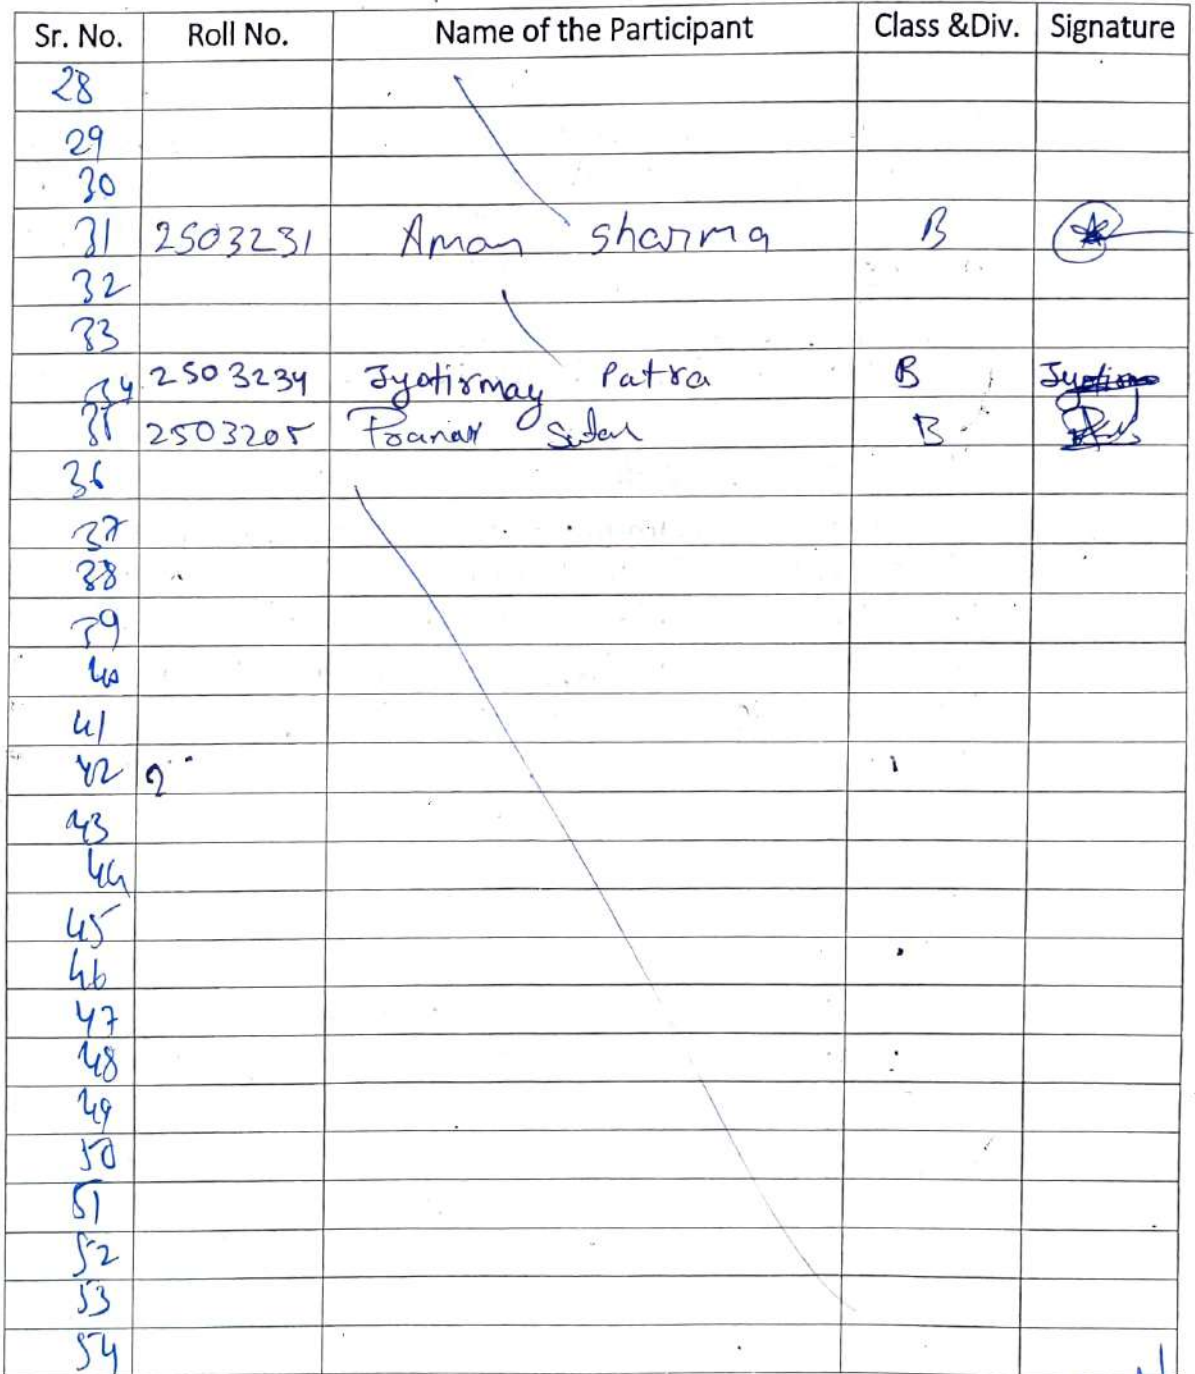 Sr. No. Roll No. Name of the Participant Class &Div. Signature
28
29
30
31 2503231 Aman sharma B
32
33
34 2503234 Jyotirmay Patra B
35 2503205 B
36
37
38
39
40
41
42 2
43
44
45
46
47
48
49
50
51
52
53
54